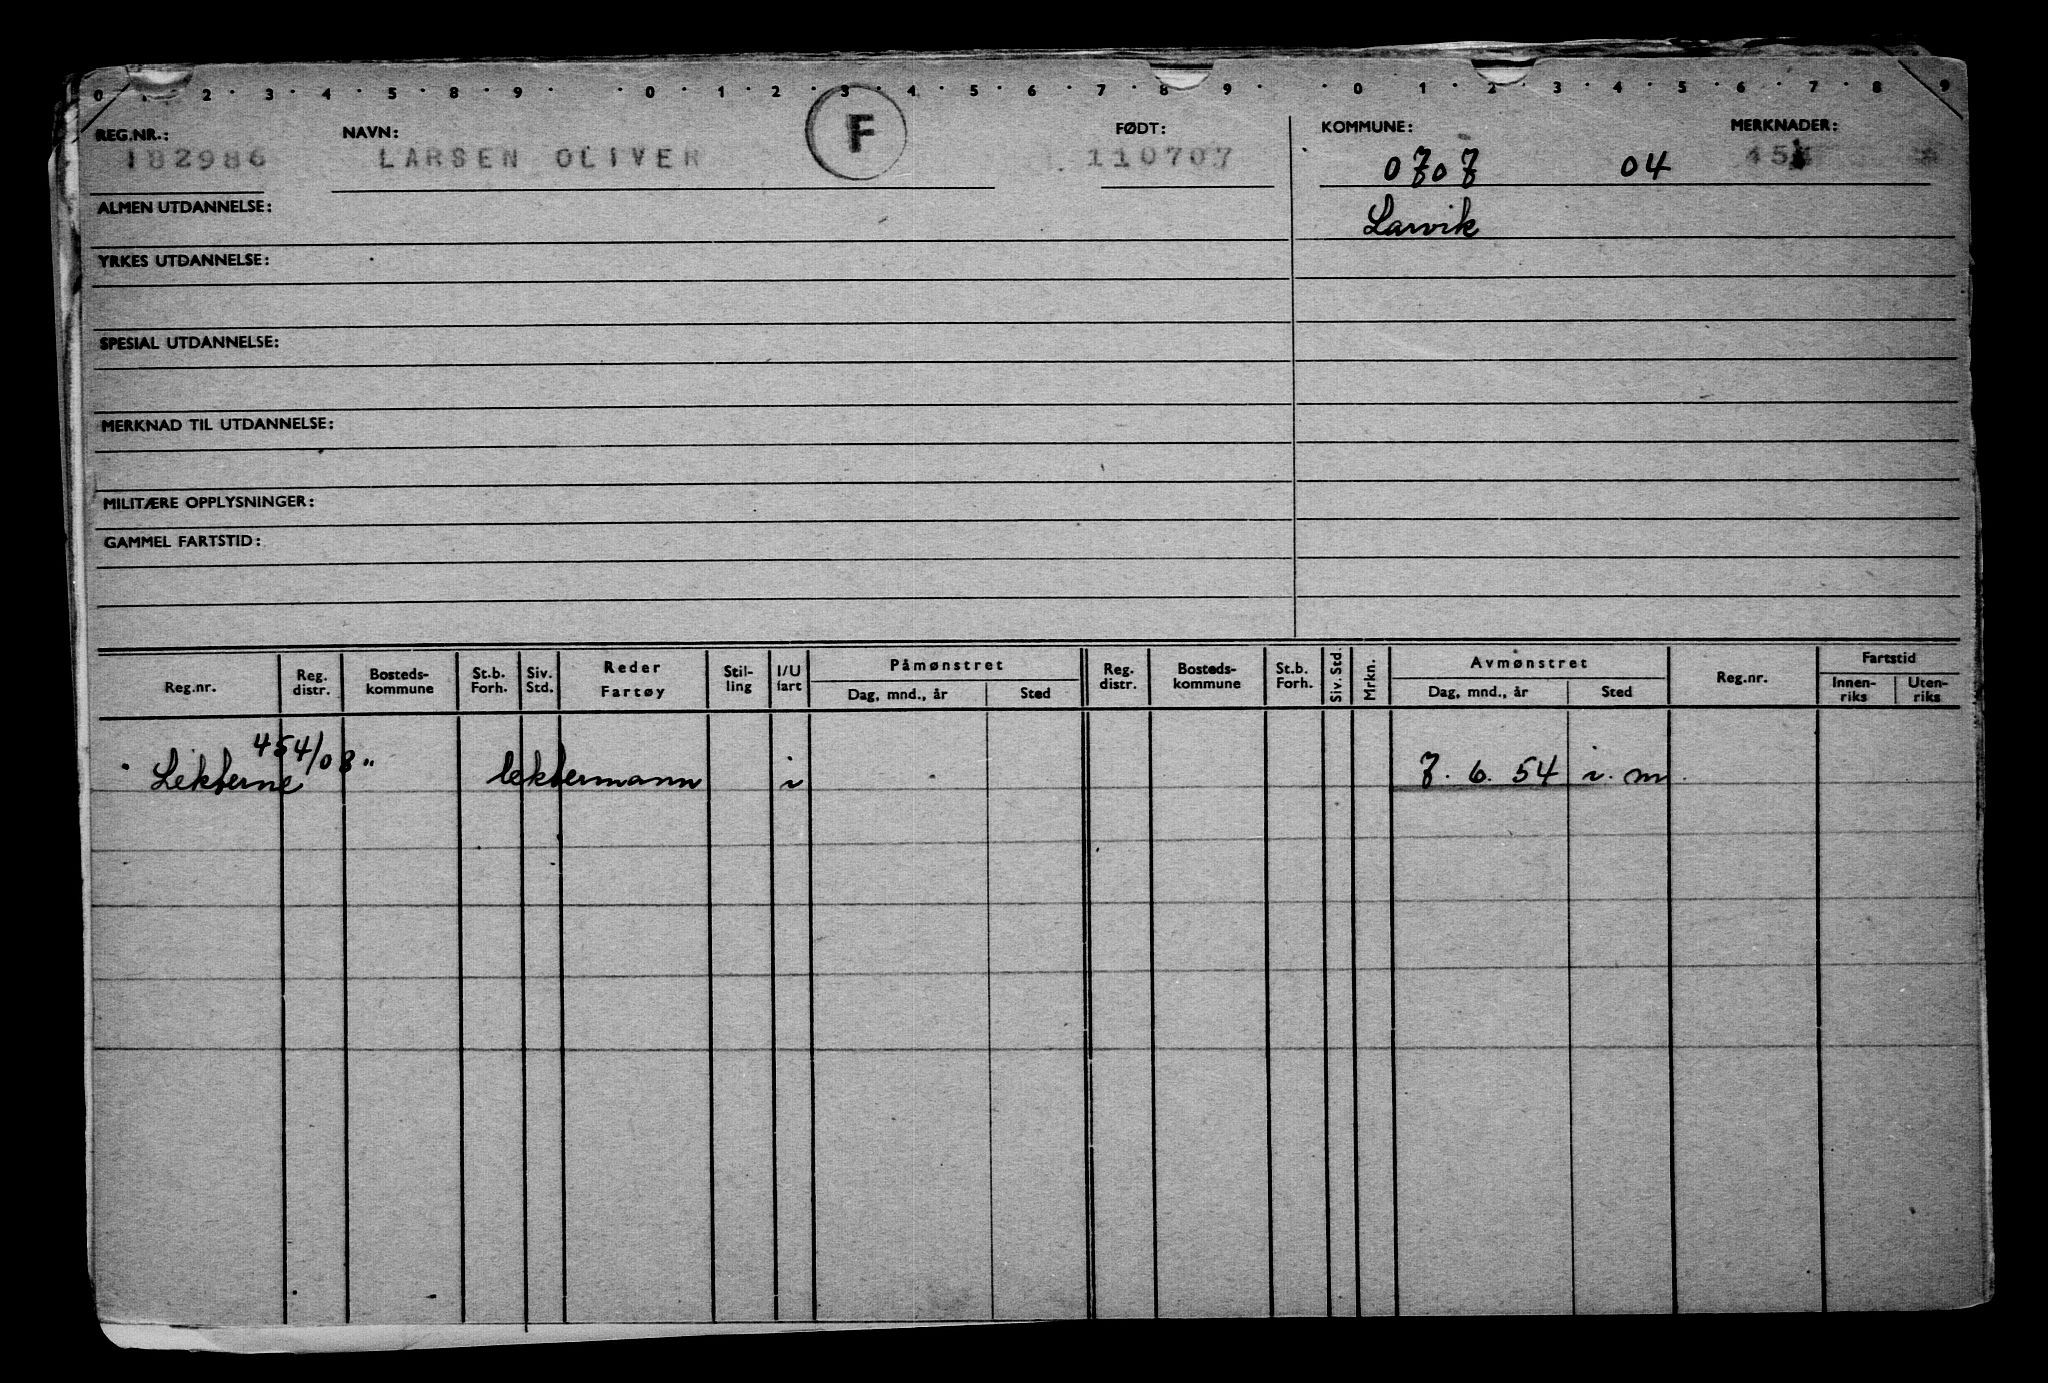 0 · 1 · 2 · 3 · 4 · 5 · 8 · 9 · · 0 · 1 · 2 · 3 · 4 · 5 · 6 · 7 · 8 · 9 · · 0 · 1 · 2 · 3 · 4 · 5 · 6 · 7 · 8 · 9
REG.NR.: NAVN: F FØDT: KOMMUNE: MERKNADER:
182986 LARSEN OLIVER 110707 0707 04
ALMEN UTDANNELSE: Larvik
YRKES UTDANNELSE:
SPESIAL UTDANNELSE:
MERKNAD TIL UTDANNELSE:
MILITÆRE OPPLYSNINGER:
GAMMEL FARTSTID:
Reg.nr. Reg. distr. Bosteds-kommune St.b. Forh. Siv. Std. Reder Fartøy Stil-ling I/U fart Påmønstret Dag, mnd., år Sted Reg. distr. Bosteds-kommune St.b. Forh. Siv. Std. Mrkn. Avmønstret Dag, mnd., år Sted Reg.nr. Fartstid Innen-riks Uten-riks
454/08"
Lekterne lektermann i 7. 6. 54 i. m.